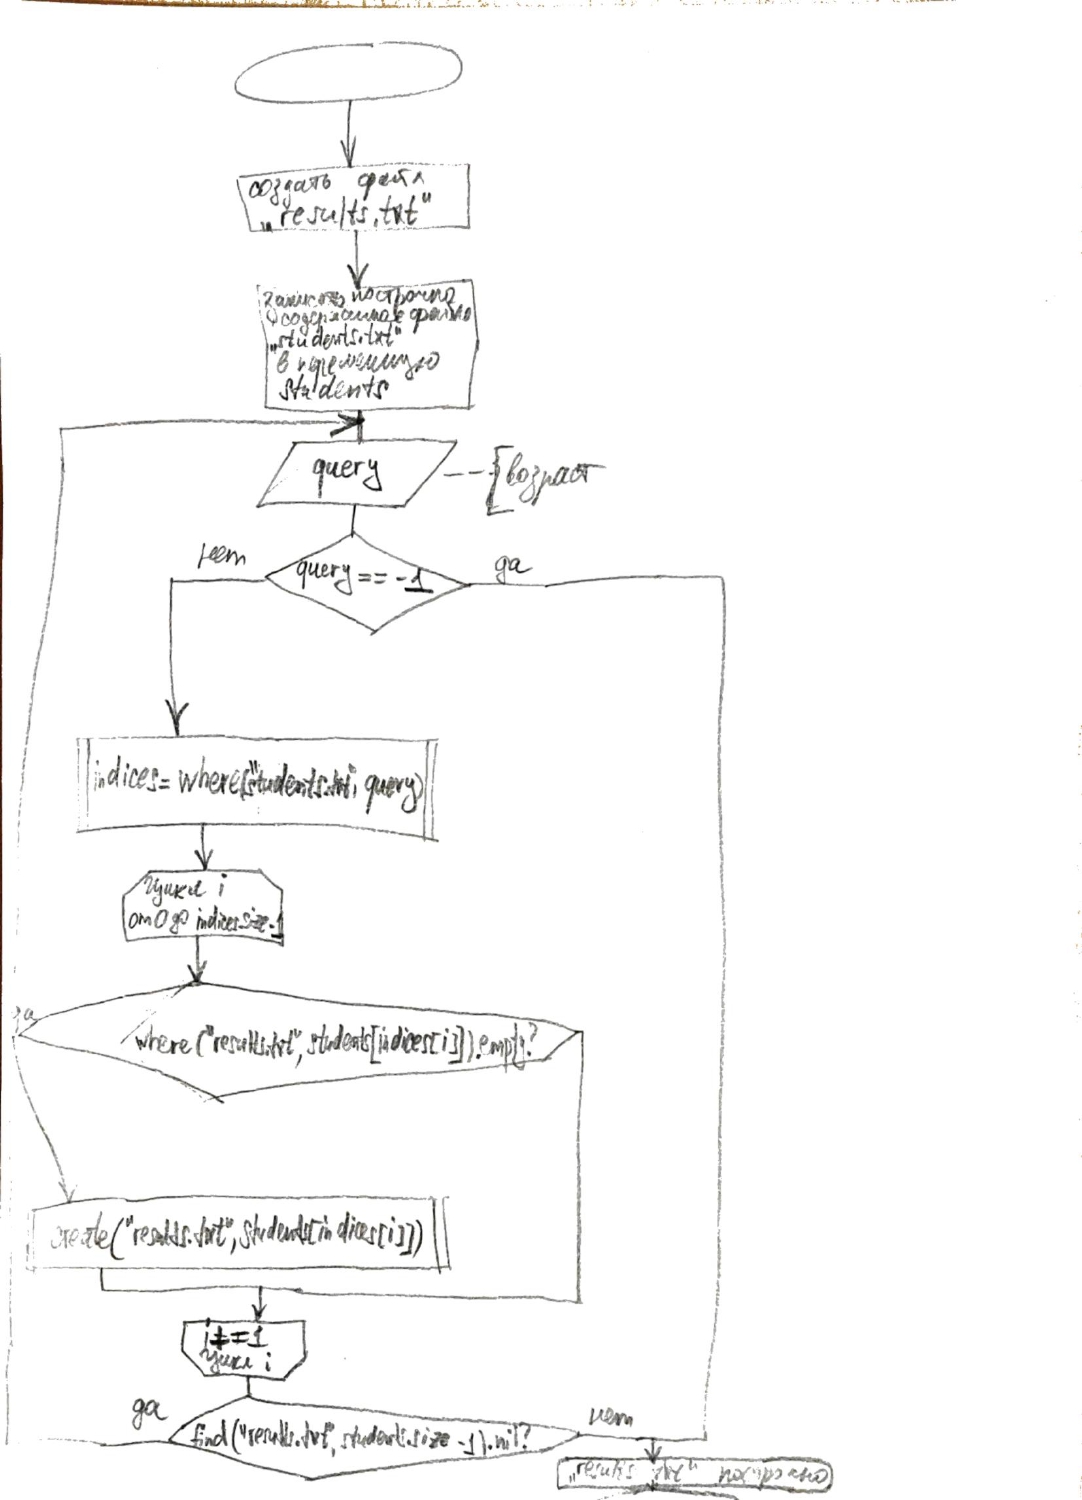 создать файл
„results.txt"
записать построчно
содержимое файла
„students.txt"
в переменную
students
query
возраст
нет
query == -1
да
indices = where("students.txt", query)
Цикл i
от 0 до indices.size-1
да
where("results.txt", students[indices[i]]).empty?
create("results.txt", students[indices[i]])
i+=1
Цикл i
да
find("results.txt", students.size -1).nil?
нет
„results.txt" построчно